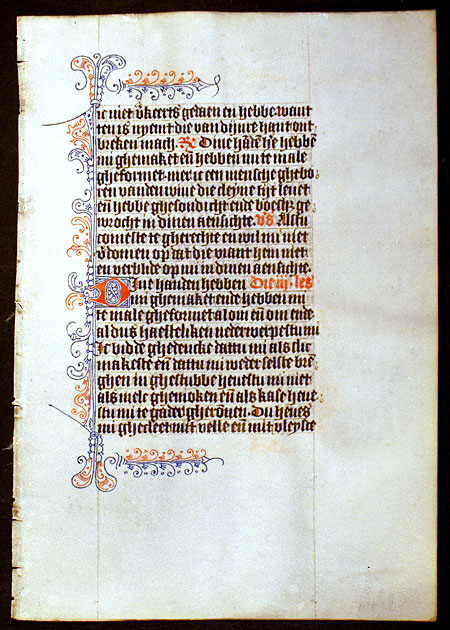 ic niet vkeerts gedaen en hebbe want
ten is nyemt die van dijnre hant ont
breken mach. R Dine hādē hebbē
mi ghemaket eñ hebben mi te male
gheformet. mer ic een mensche ghebo
ren vanden wiue die cleyne tijt leuet
eñ hebbe ghesondicht ende boeslic ge
wrocht in dinen aensichte. vs Alstu
comeste te gherechte en wil mi niet
vdomen op dat die want hem niet
en verblide op mi in dinen aensichte
Dine handen hebben Die iij. les
mi ghemaket ende hebben mi
te male gheformet alom eñ om ende
aldus haesteliken nederwerpestu mi
Ic bidde ghedencke dattu mi als slic
makeste eñ dattu mi weder selste brē
ghen in ghestubbe heuestu mi niet
als melc ghemolken eñ als kase heue
stu mi te gader gherōnen. Du heues
mi ghecleet mit velle eñ mit vleysce